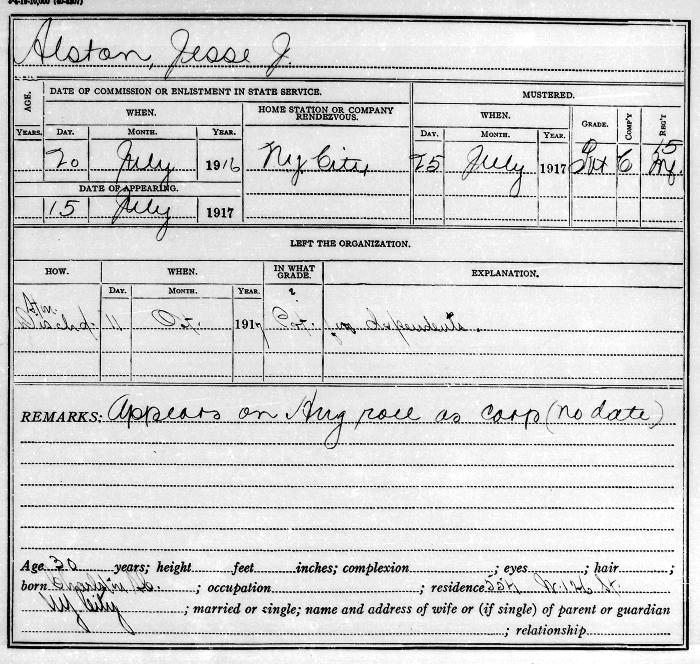 Alston, Jesse J.
AGE. DATE OF COMMISSION OR ENLISTMENT IN STATE SERVICE. MUSTERED.
WHEN. HOME STATION OR COMPANY RENDEZVOUS. WHEN. GRADE. COMP'Y REG'T
YEARS. DAY. MONTH. YEAR. DAY. MONTH. YEAR.
20 July 1916 N.Y. City 25 July 1917 Pvt C 15 Inf.
DATE OF APPEARING.
15 July 1917
LEFT THE ORGANIZATION.
HOW. WHEN. IN WHAT GRADE. EXPLANATION.
DAY. MONTH. YEAR. ?
Hon. Dischd. 11 Oct. 1917 dependents.
REMARKS: Appears on Aug roll as corp (no date)
Age 30 years; height feet inches; complexion ; eyes ; hair ;
born ; occupation ; residence W.
N.Y. City ; married or single; name and address of wife or (if single) of parent or guardian
; relationship